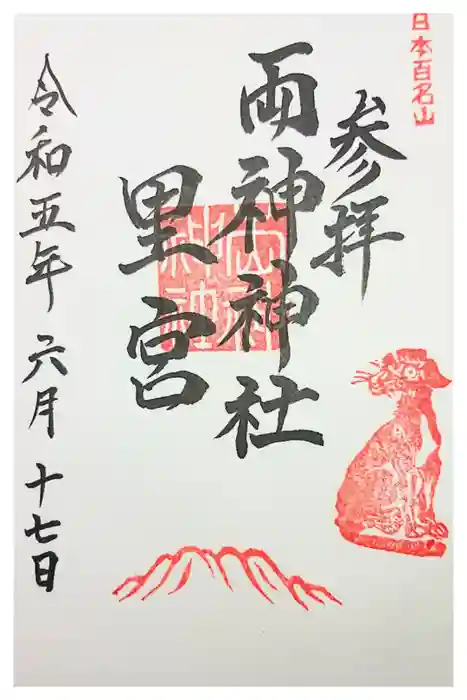 日本百名山
参拝
両神神社
里宮
令和五年六月十七日